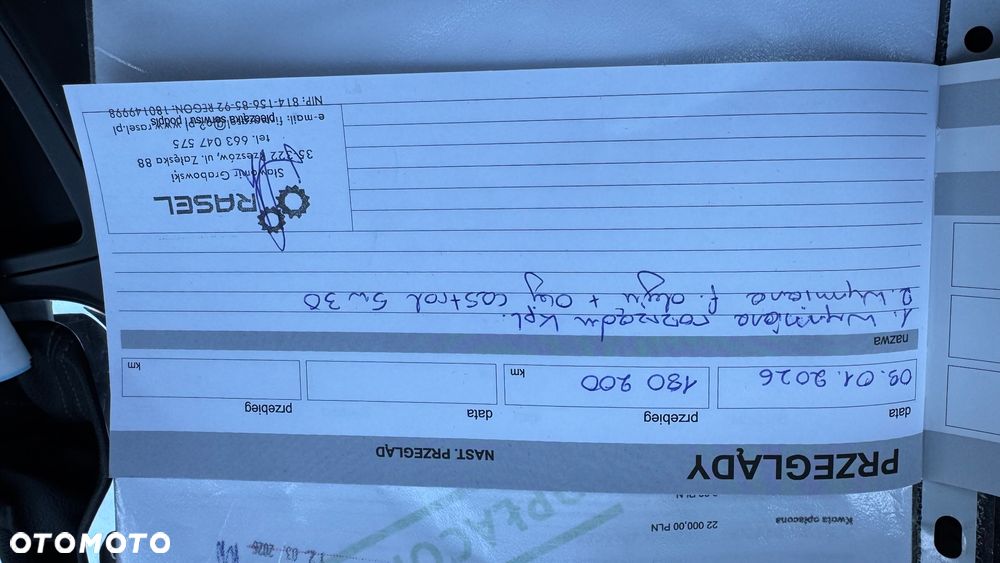 PRZEGLĄDY
NAST. PRZEGLĄD
data
przebieg
data
przebieg
09.01.2026
180 200 km
km
nazwa
1. Wymiana rozrządu kpl.
2. Wymiana f. oleju + olej castrol 5w30
RASEL
Sławomir Grabowski
35-322 Rzeszów, ul. Załęska 88
tel. 663 047 575
pieczątka serwisu i podpis
www.rasel.pl
NIP: 814-156-85-92 REGON: 180149998
Kwota opłacona
22 000,00 PLN
OTOMOTO